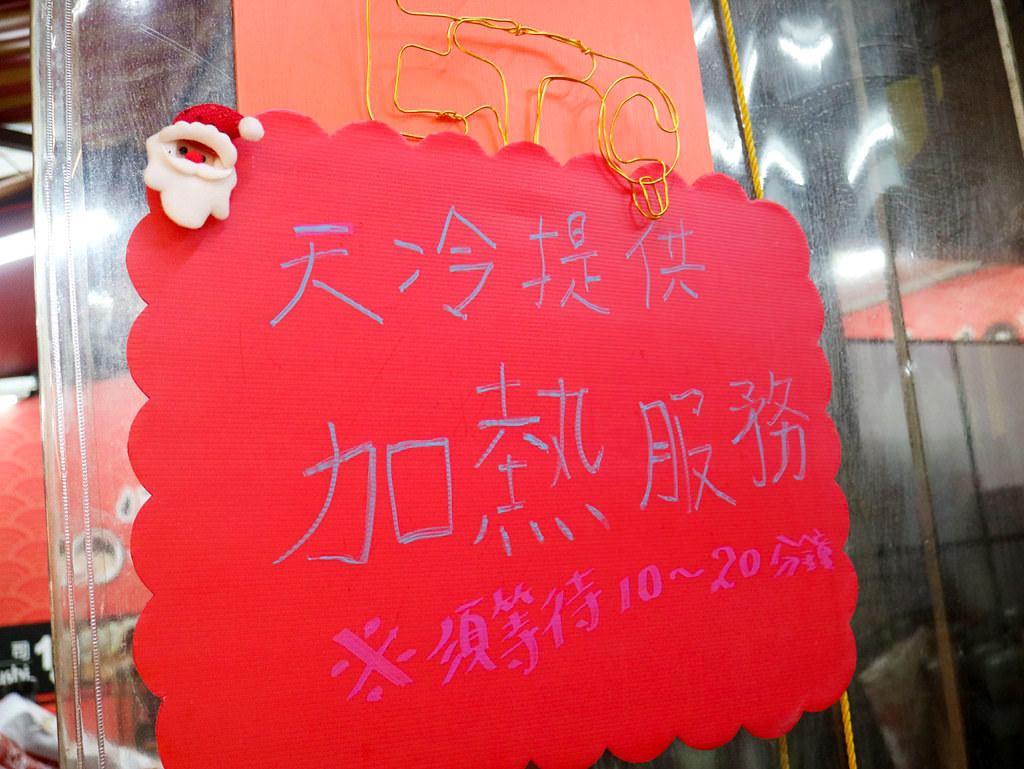 天冷提供
加熱服務
※須等待10～20分鐘
司